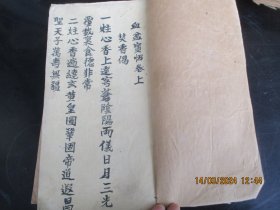 血盆寶懺卷上
焚香偈
一炷心香上達穹蒼陰陽兩儀日月三光
覆載衣食德非常
二炷心香遙達玄黄皇國鞏固帝道遐昌
聖天子萬壽無疆
14/09/2024 12:44